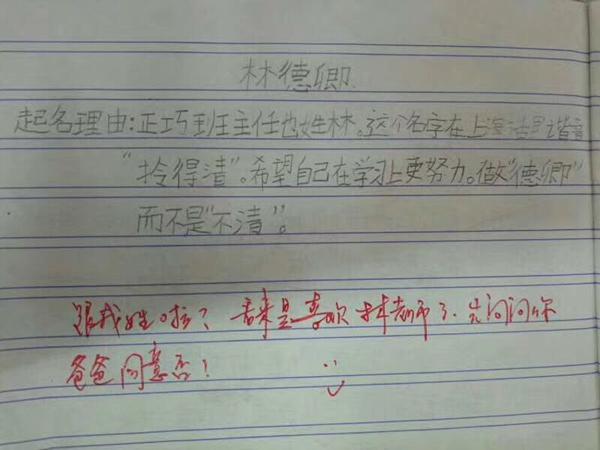 林德卿
起名理由:正巧班主任也姓林。这个名字在上海话里谐音
“拎得清”。希望自己在学习上更努力。做“德卿”
而不是“不清”。
跟我姓啦? 看来是喜欢林老师了.先问问你
爸爸同意否?